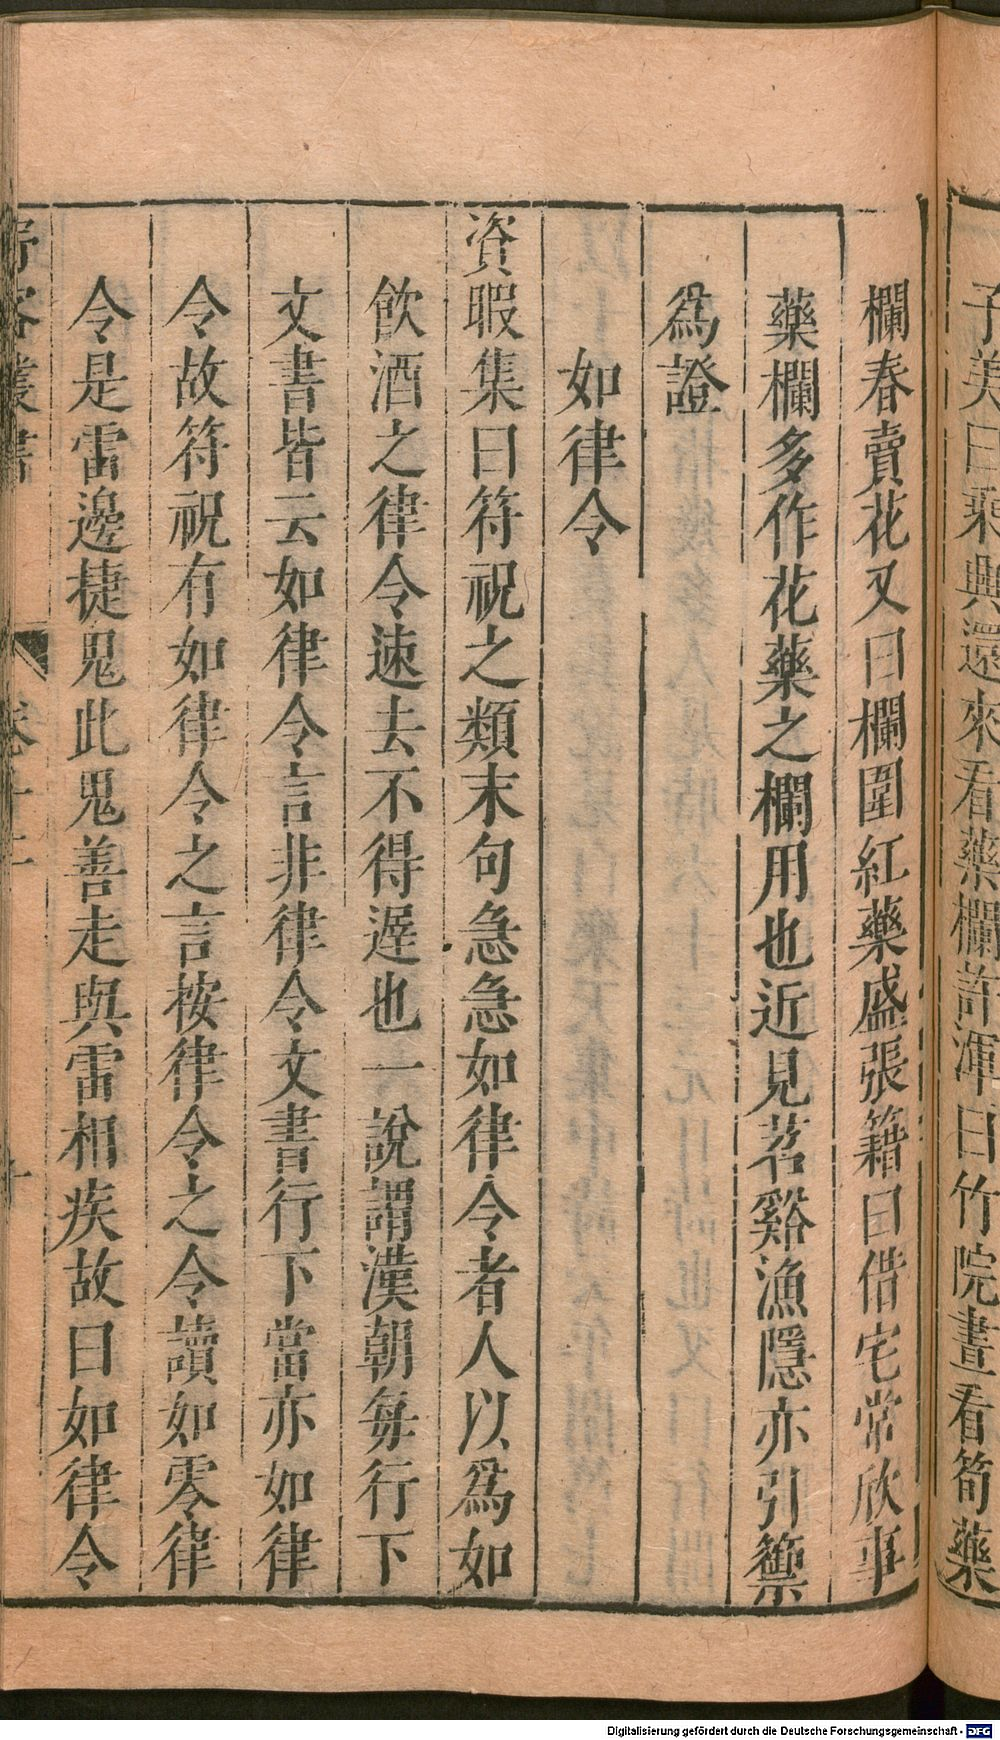 子美曰乘興還來看藥欄許渾曰竹院晝看筍藥
欄春賣花又曰欄圍紅藥盛張籍曰借宅常欣事
藥欄多作花藥之欄用也近見苕谿漁隱亦引籞
為證
如律令
資暇集曰符祝之類末句急急如律令者人以為如
飲酒之律令速去不得遲也一說謂漢朝每行下
文書皆云如律令言非律令文書行下當亦如律
令故符祝有如律令之言按律令之令讀如零律
令是雷邊捷鬼此鬼善走與雷相疾故曰如律令
野客叢書
卷十二
Digitalisierung gefördert durch die Deutsche Forschungsgemeinschaft - DFG